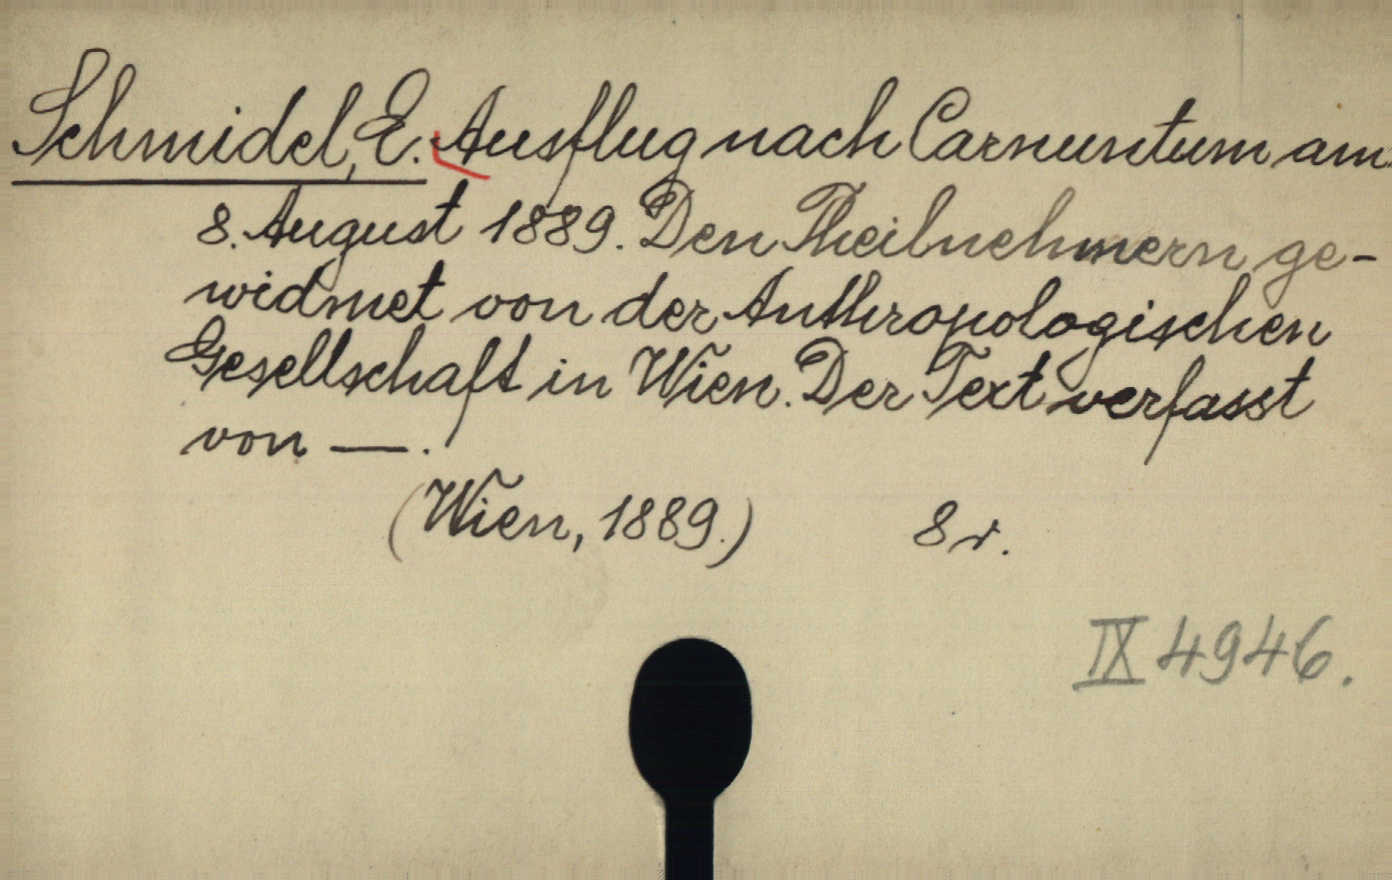 Schmidel, E. Ausflug nach Carnuntum am
8. August 1889. Den Theilnehmern ge-
widmet von der Anthropologischen
Gesellschaft in Wien. Der Text verfasst
von —.
(Wien, 1889.) 8r.
IX 4946.